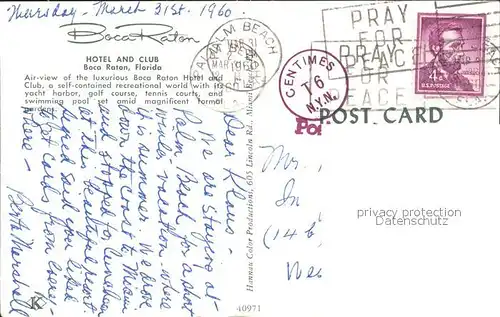 Thursday - March 31st. 1960
Boca Raton
HOTEL AND CLUB
Boca Raton, Florida
Air-view of the luxurious Boca Raton Hotel and
Club, a self-contained recreational world with its
yacht harbor, golf course, tennis courts, and
swimming pool set amidst magnificent formal
gardens.
Dear Klaus -
We are staying at
Palm Beach for a short
winter vacation - where
it is summer. We drove
down the coast to Miami
and stopped for luncheon
at this beautiful resort.
said you liked
that cards from
where -
Marshall
K
Hannau Color Productions, 605 Lincoln Rd., Miami Beach
40971
PALM BEACH
MAR 31
1960
PRAY
FOR
PEACE
PRAY
FOR
PEACE
CENTIMES
T6
N.Y.N.
U.S. POSTAGE
Po
POST CARD
Mr.
In
(14 b
Wes
privacy protection
Datenschutz